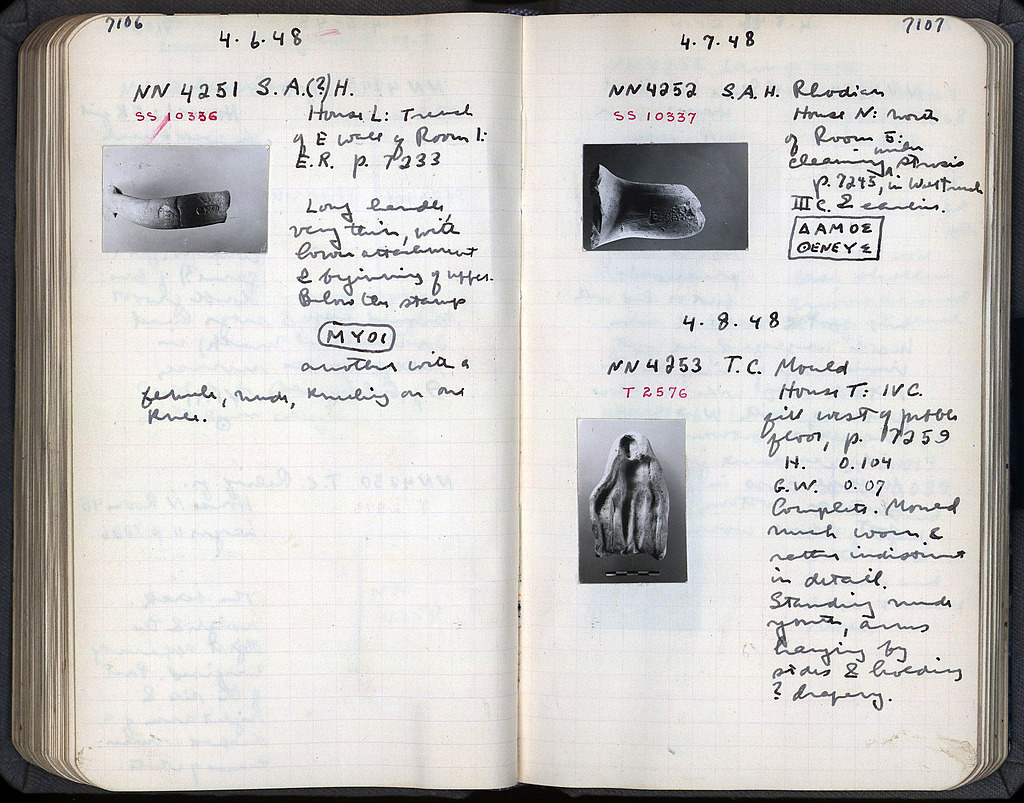 7106
4.6.48
NN 4251 S.A.(?)H.
SS 10336
House L: Trench
of E wall of Room 1:
E.R. p. 7233
Long handle
very thin, with
lower attachment
& beginning of upper.
Below the stamp
MYOI
another with a
female, nude, kneeling on one
knee.
7107
4.7.48
NN 4252 S.A.H. Rhodian
SS 10337
House N: north
of Room 5:
under
cleaning strosis
p. 7245, in West
III C. & earlier.
ΔΑΜΟΣ
ΘΕΝΕΥΣ
4.8.48
NN 4253 T.C. Mould
T 2576
House T: IV C.
fill west of pebble
floor, p. 7259
H. 0.104
G.W. 0.07
Complete. Mould
much worn &
rather indistinct
in detail.
Standing nude
youth, arms
hanging by
sides & holding
? drapery.